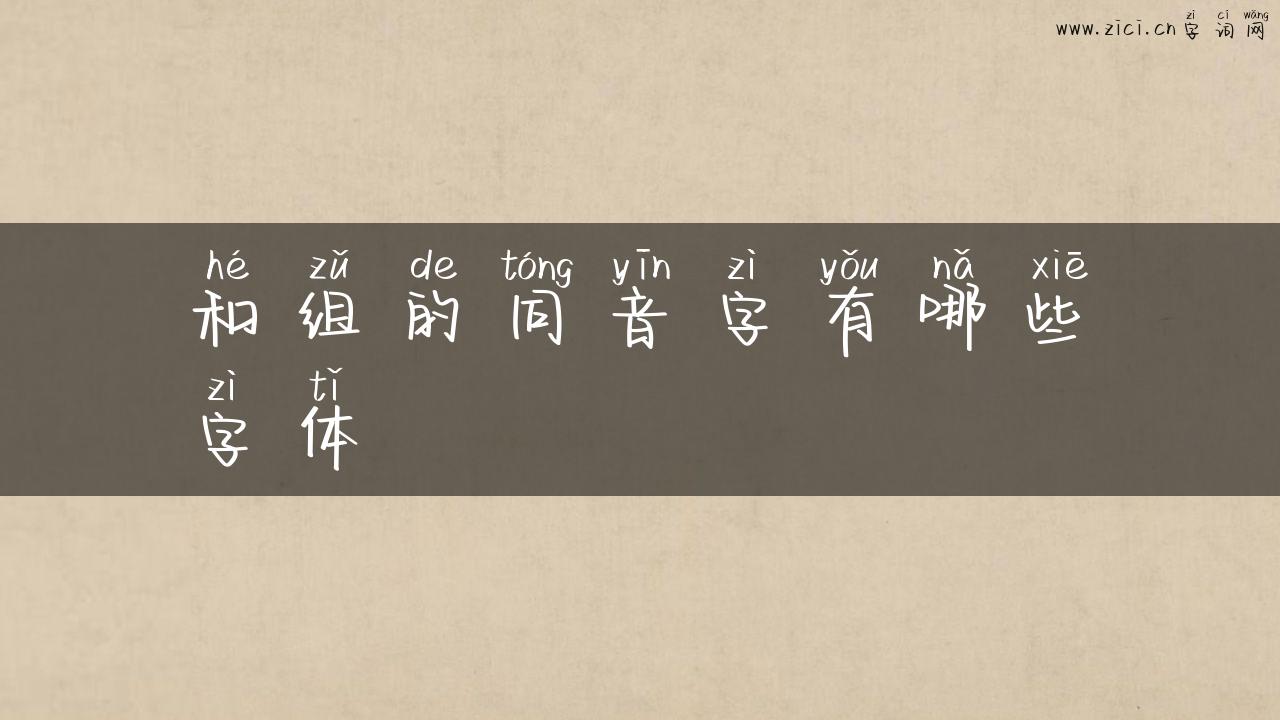 zì cí wǎng
www.zici.cn 字词网
hé zǔ de tóng yīn zì yǒu nǎ xiē
和组的同音字有哪些
zì tǐ
字体